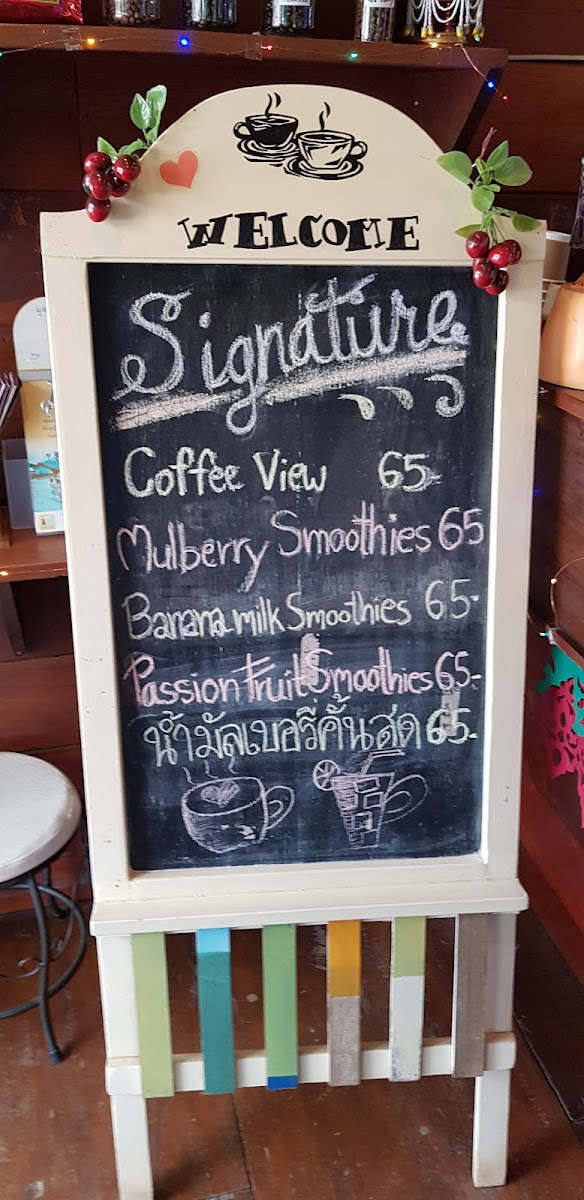 WELCOME
Signature
Coffee View 65-
Mulberry Smoothies 65
Banana milk Smoothies 65-
Passion Fruit Smoothies 65-
น้ำมัลเบอรี่คั้นสด 65-